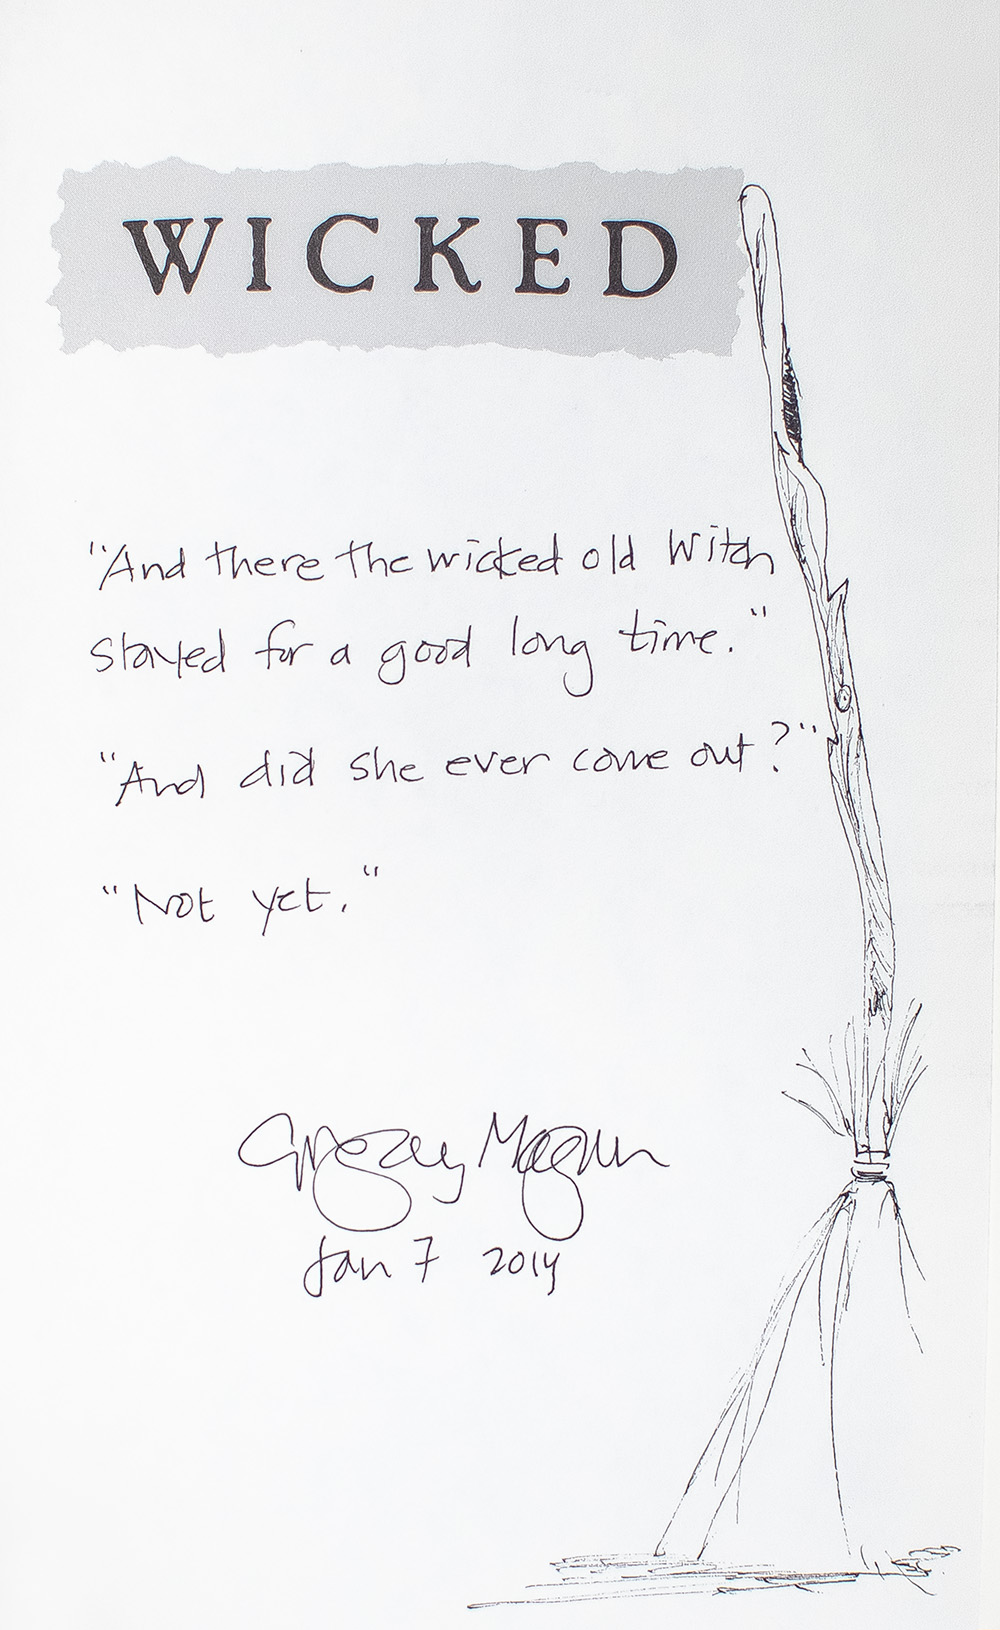 WICKED
"And there the wicked old Witch
stayed for a good long time."
"And did she ever come out?"
"Not yet."
Gregory Maguire
Jan 7 2014